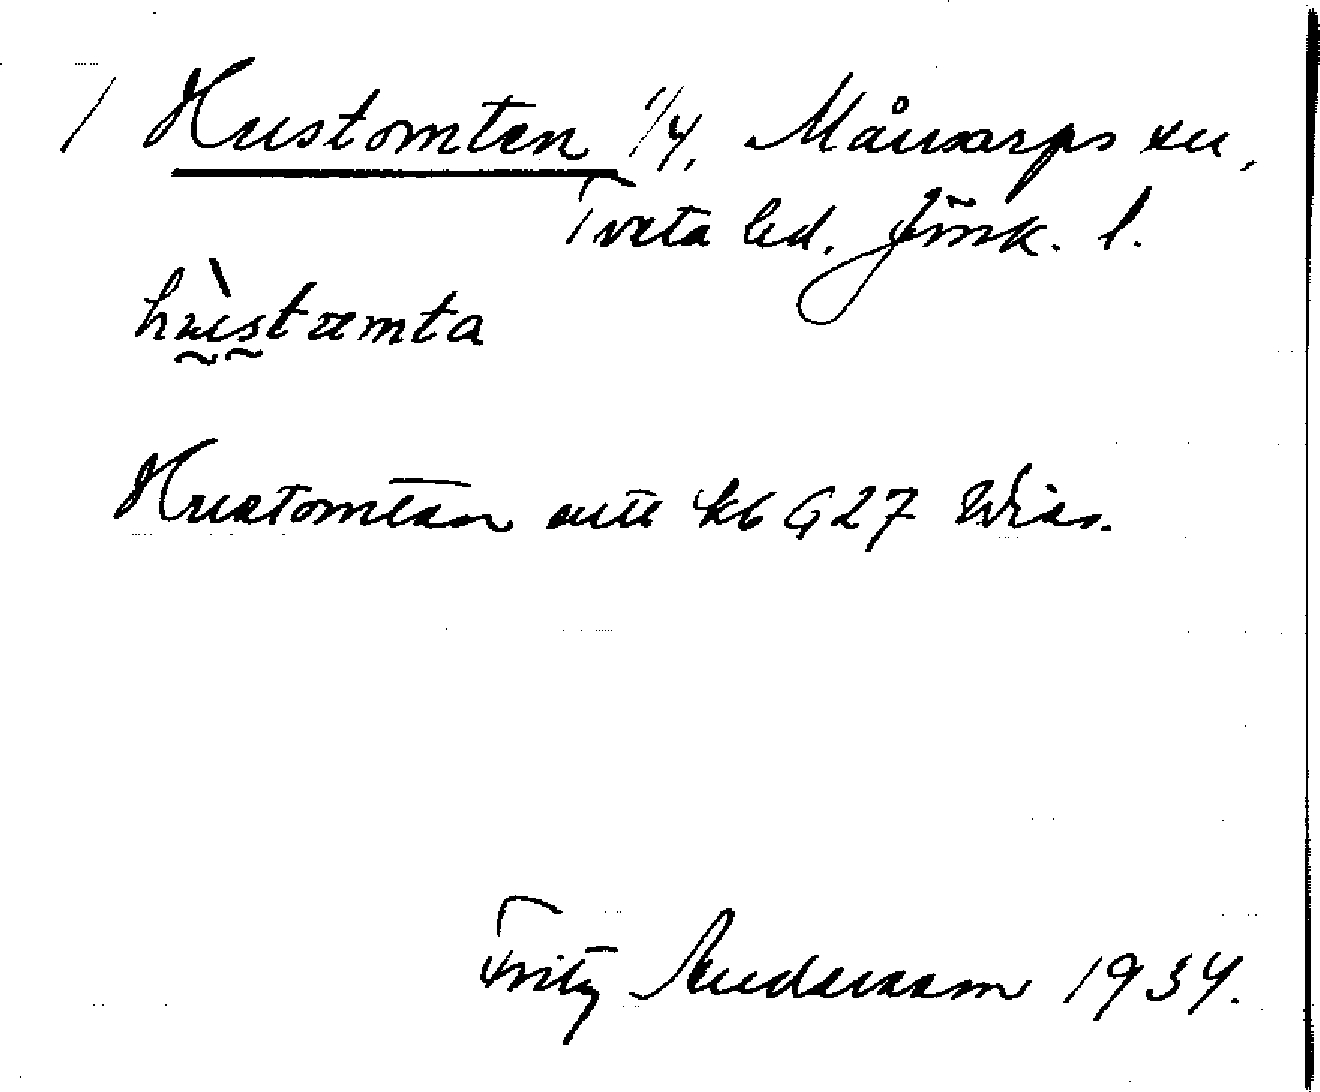 / Hustomten 1/4, Månsarps sn,
Tveta hd. Jönk. l.
hùstæmta
Hustomten
Fritz Andersson 1934.